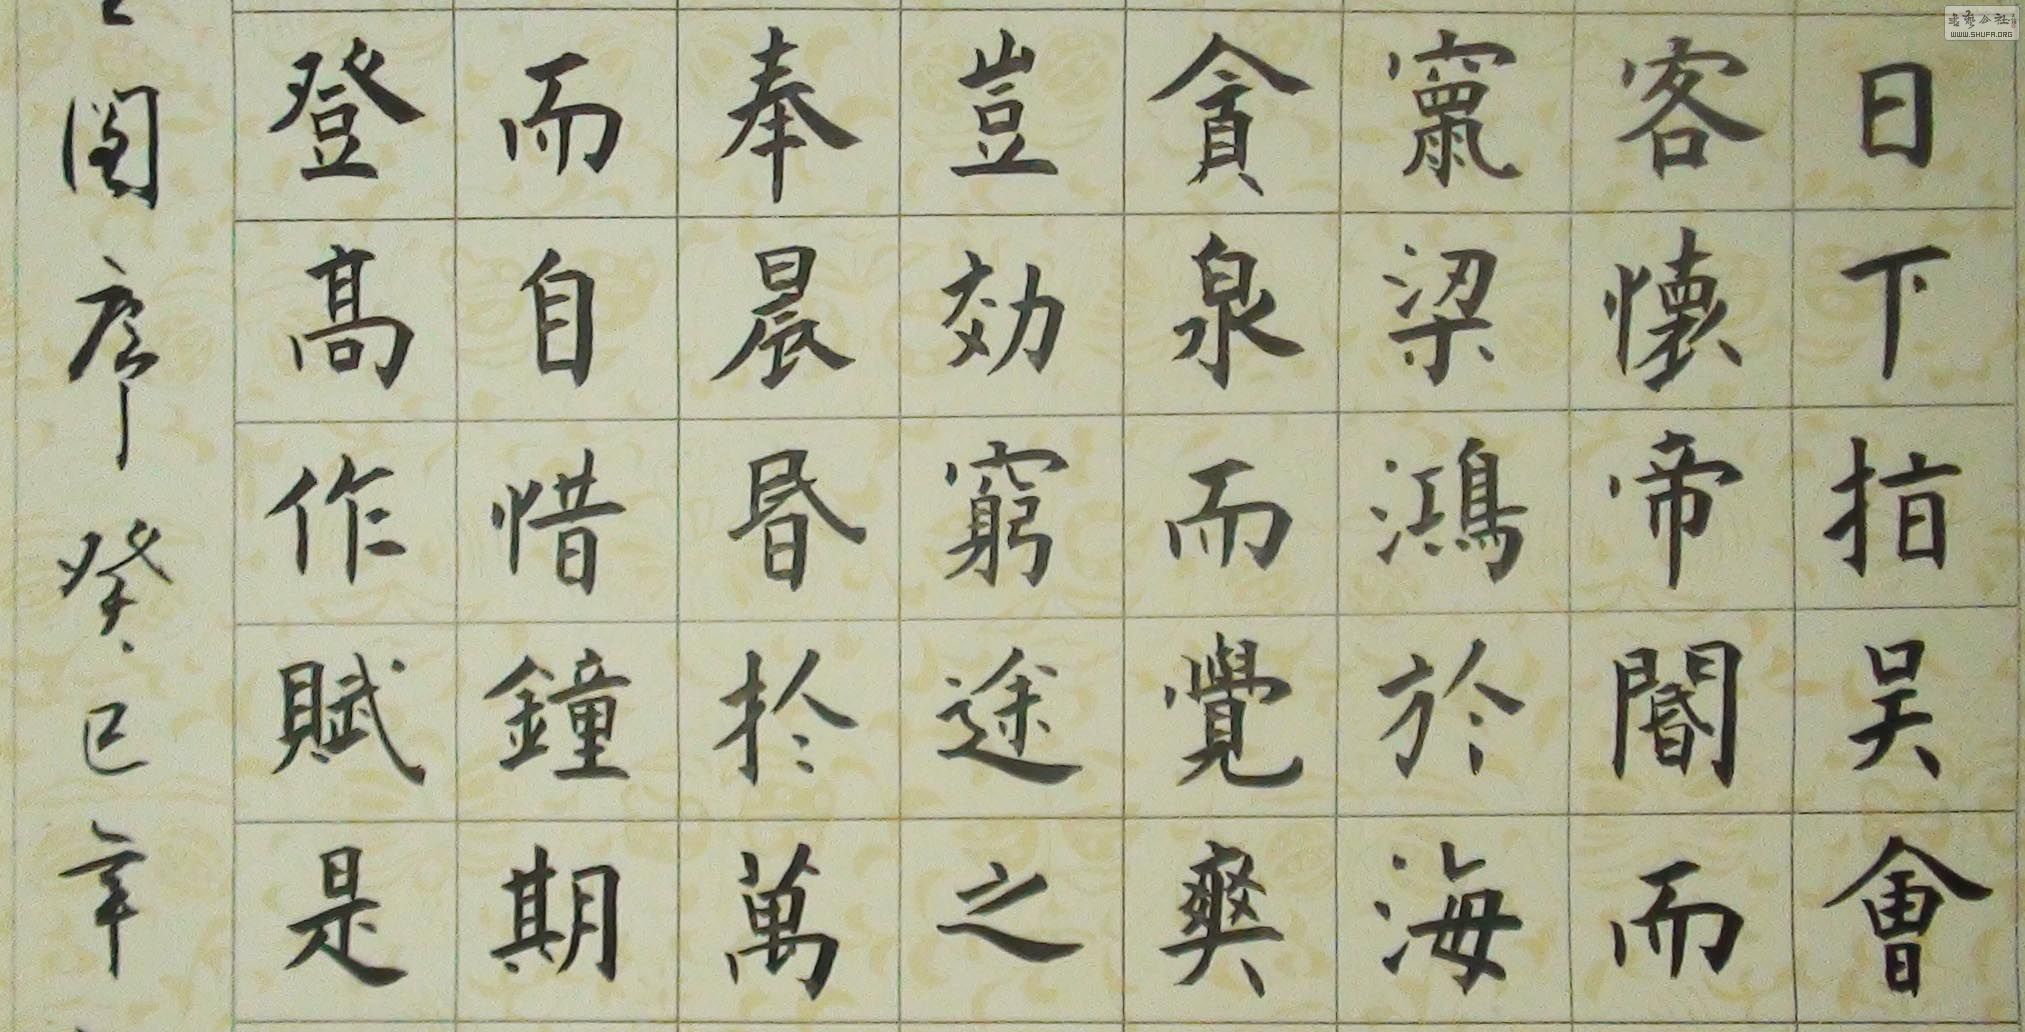 日下指吴會
客懷帝閽而
竄梁鴻於海
貪泉而覺爽
豈効窮途之
奉晨昬於萬
而自惜鐘期
登髙作賦是
閣序癸巳年
書藝公社
WWW.SHUFA.ORG